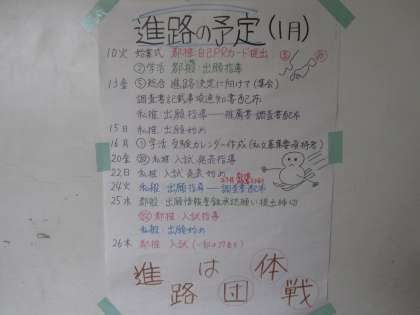 進路の予定(1月)
10火 始業式 都推・自己PRカード提出
②学活 都般 出願指導
13金 ⑤総合 進路決定に向けて(集会)
調査書記載事項通知書配布
私推 出願指導――推薦書・調査書配布
15日 私推 出願始め
16月 ①学活 受験カレンダー作成(私立募集要項持参)
20金 私推 入試・発表指導
22日 私推 入試・発表始め
24火 私般 出願指導――調査書配布
25水 都般 出願情報登録承認願い提出締切
都推 入試指導
私般 出願始め
26木 都推 入試(一部は27日も)
進路は団体戦